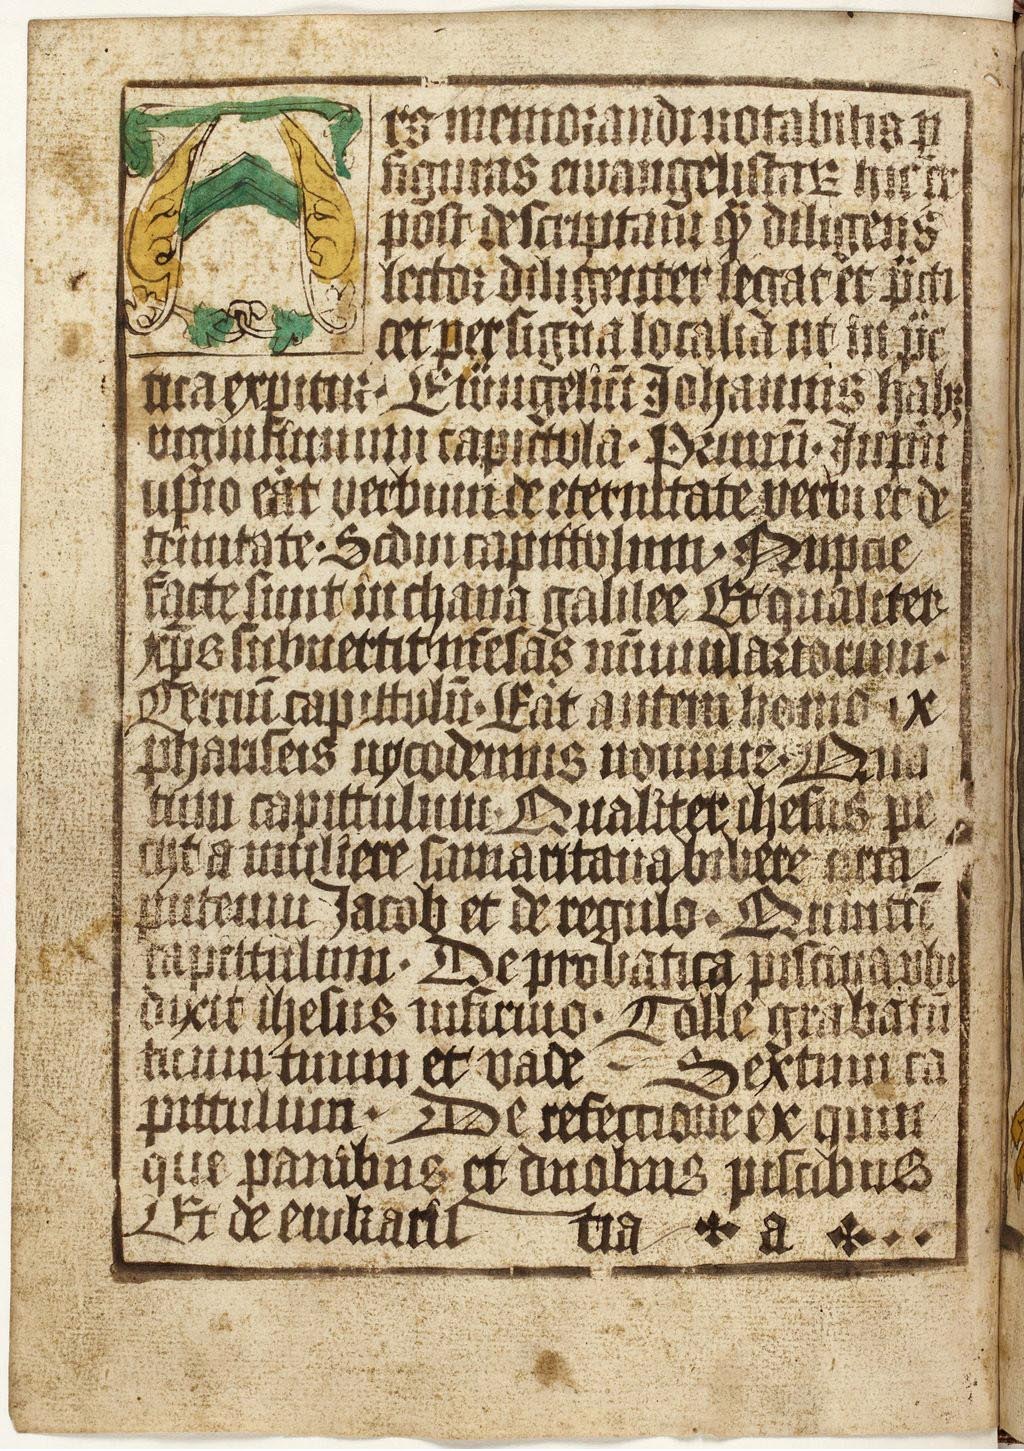 Ars memorandi notabilis p̲
figuras ewangelistaꝝ hic ex
post descriptam qͣ diligens
lector diligenter legat et p̈cti
cet per signa localia ut in p̈c
tica expitur· Ewͣngeliū Johannis habꝫ
viginti unum capittula· Primū· In pͥn
cipio eͣt verbum de eternitate verbi et de
trinitate· Scdm capittulum· Nupcie
facte sunt in chana galilee Et qualiter
xp̄s subuertit mēsas nūmulariorum·
Terciū capittulū· Eͣt autem homo ix
phariseis nycodemus nomine· Qua
tum capittulum· Qualiter ihesus pe
cijt a muliere samaritana bibere circa
puteum Jacob et de regulo· Quintū
capittulum· De probatica piscina vbi
dixit ihesus infirmo· Tolle grabatū
tuum tuum et vade Sextum ca
pittulum· De refectione ex quin
que panibus et duobus piscibus
Et de ewkaris tia ✤ a ✤··